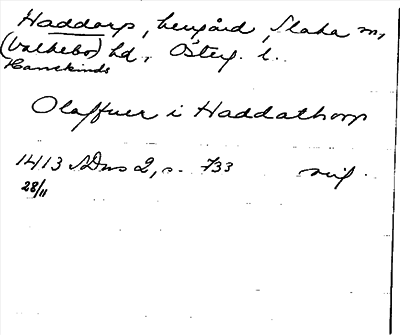 Haddorp, herrgård, Slaka sn,
(Valkebo) hd, Österg. l.
Hanekinds
Olaffuer i Haddathorp
1413 SDns 2, s. 733 avs.
28/11